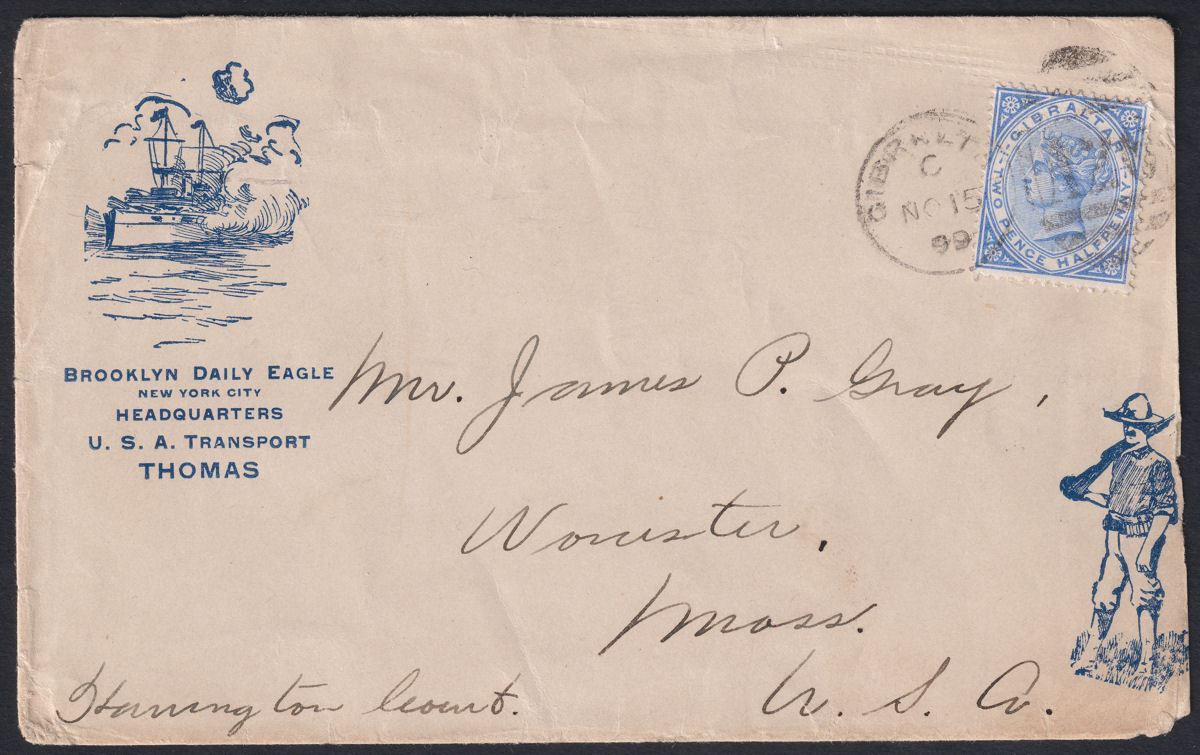 BROOKLYN DAILY EAGLE
NEW YORK CITY
HEADQUARTERS
U. S. A. TRANSPORT
THOMAS
GIBRALTAR
C
NO 15
99
GIBRALTAR
TWO PENCE HALFPENNY
Mr. James P. Gray,
Worcester,
Mass.
U. S. A.
Harrington Court.